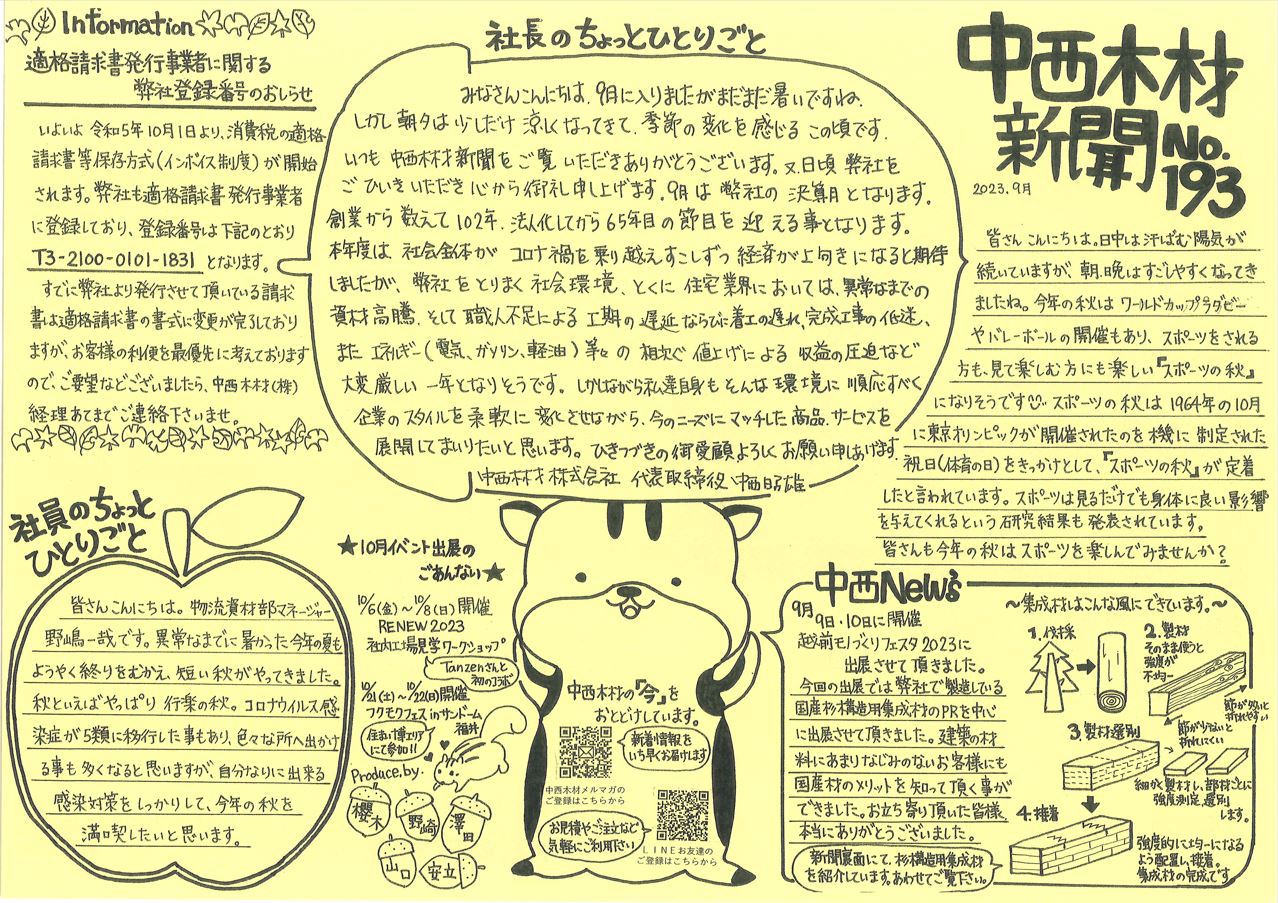 中西木材
新聞 No.
193
2023.9月
皆さんこんにちは。日中は汗ばむ陽気が
続いていますが、朝晩はすごしやすくなってき
ましたね。今年の秋はワールドカップラグビー
やバレーボールの開催もあり、スポーツをされる
方も、見て楽しむ方にも楽しい『スポーツの秋』
になりそうです スポーツの秋は1964年の10月
に東京オリンピックが開催されたのを機に制定された
祝日(体育の日)をきっかけとして、『スポーツの秋』が定着
したと言われています。スポーツは見るだけでも身体に良い影響
を与えてくれるという研究結果も発表されています。
皆さんも今年の秋はスポーツを楽しんでみませんか?
社長のちょっとひとりごと
みなさんこんにちは、9月に入りましたがまだまだ暑いですね。
しかし朝夕は少しだけ涼しくなってきて、季節の変化を感じるこの頃です。
いつも中西木材新聞をご覧いただきありがとうございます。又日頃弊社を
ごひいきいただき心から御礼申し上げます。9月は弊社の決算期となります。
創業から数えて102年、法人化してから65年目の節目を迎える事となります。
本年度は社会全体がコロナ禍を乗り越え、すこしずつ経済が上向きになると期待
しましたが、弊社をとりまく社会環境、とくに住宅業界においては、異常なまでの
資材高騰、そして職人不足による工期の遅延ならびに着工の遅れ、完成工事の低迷、
またエネルギー(電気、ガソリン、軽油)等々の相次ぐ値上げによる収益の圧迫など
大変厳しい一年となりそうです。しかしながら私達自身もそんな環境に順応すべく
企業のスタイルを柔軟に変化させながら、今のニーズにマッチした商品、サービスを
展開してまいりたいと思います。ひきつづきの御愛顧、よろしくお願い申しあげます。
中西木材株式会社 代表取締役 中西昭雄
Information
適格請求書発行事業者に関する
弊社登録番号のおしらせ
いよいよ令和5年10月1日より、消費税の適格
請求書等保存方式(インボイス制度)が開始
されます。弊社も適格請求書発行事業者
に登録しており、登録番号は下記のとおり
T3-2100-0101-1831 となります。
すでに弊社より発行させて頂いている請求
書は適格請求書の書式に変更が完了しており
ますが、お客様の利便を最優先に考えております
ので、ご要望などございましたら、中西木材(株)
経理あてまでご連絡下さいませ。
社員のちょっと
ひとりごと
皆さんこんにちは。物流資材部マネージャー
野嶋一哉です。異常なまでに暑かった今年の夏も
ようやく終りをむかえ、短い秋がやってきました。
秋といえばやっぱり行楽の秋。コロナウイルス感
染症が5類に移行した事もあり、色々な所へ出かけ
る事も多くなると思いますが、自分なりに出来る
感染対策をしっかりして、今年の秋を
満喫したいと思います。
★10月イベント出展の
ごあんない★
10/6(金)～10/8(日)開催
RENEW2023
社内工場見学ワークショップ
Tanzenさんと
初のコラボ
10/21(土)～10/22(日)開催
フクモクフェスinサンドーム
福井
住まい博エリア
にて参加!!
Produce.by.
櫻木
野崎
澤田
山口
安立
中西木材の『今』を
おとどけしています。
新着情報を
いち早くお届けします
中西木材メルマガの
ご登録はこちらから
お見積やご注文など
気軽にご利用下さい
LINEお友達の
ご登録はこちらから
中西News
9月
9日・10日に開催
越前モノづくりフェスタ2023に
出展させて頂きました。
今回の出展では弊社で製造している
国産杉構造用集成材のPRを中心
に出展させて頂きました。建築の材
料にあまりなじみのないお客様にも
国産材のメリットを知って頂く事が
できました。お立ち寄り頂いた皆様、
本当にありがとうございました。
新聞裏面にて、杉構造用集成材
を紹介しています。あわせてご覧下さい。
～集成材はこんな風にできています。～
1.伐採
2.製材
そのまま使うと
強度が
不均一
節が多いと
折れやすい
節が少ないと
折れにくい
3.製材選別
細かく製材し、部材ごとに
強度測定、選別
します。
4.接着
強度的に均一になる
よう配置し、接着。
集成材の完成です。